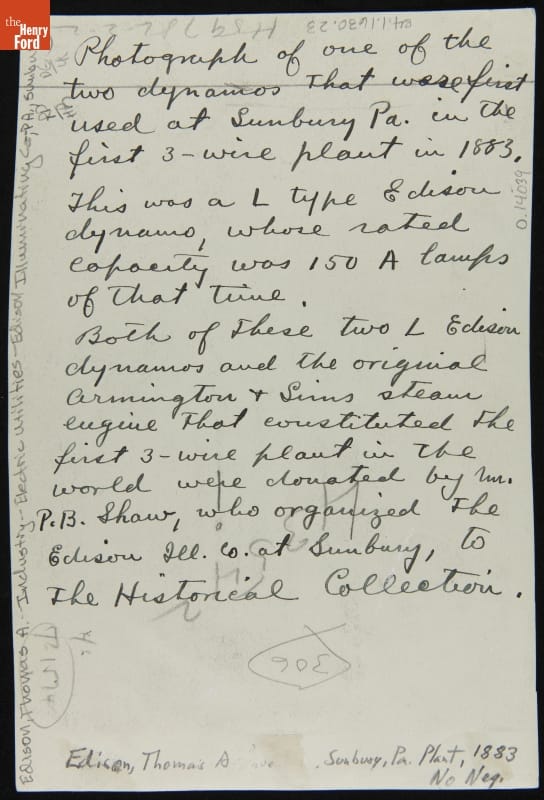 the
Henry
Ford
Photograph of one of the
two dynamos that were first
used at Sunbury Pa. in the
first 3-wire plant in 1883.
This was a L type Edison
dynamo, whose rated
capacity was 150 A lamps
of that time.
Both of these two L Edison
dynamos and the original
Armington & Sims steam
engine that constituted the
first 3-wire plant in the
world were donated by Mr.
P.B. Shaw, who organized the
Edison Ill. Co. at Sunbury, to
the Historical Collection.
306
Edison, Thomas A. Sunbury, Pa. Plant, 1883
No Neg.
Edison, Thomas A.--Industry--Electric Utilities--Edison Illuminating Co, PA, Sunbury
0.14039
84.1.1630.23